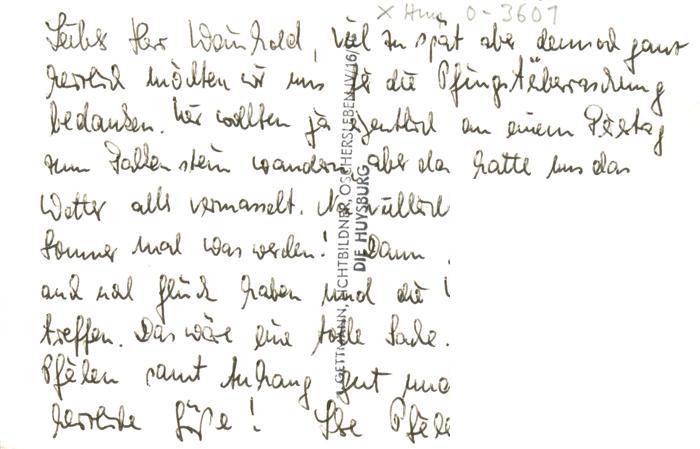 X Huy 0-3601
Liebes Herr Weinhold, viel zu spät aber dennoch ganz
herzlich möchten wir uns für die Pfingstüberraschung
bedanken. Wir wollten ja eigentlich an einem Feiertag
zum Fallenstein wandern, aber da hatte uns das
Wetter alles vermasselt. Na, vielleicht
Sommer mal was werden! Dann
auch mal Glück haben und die
treffen. Das wäre eine tolle Sache.
samt Anhang gut und
herzliche Grüße! Ihre
GETTMANN, LICHTBILDNER, OSCHERSLEBEN IV/16/
DIE HUYSBURG